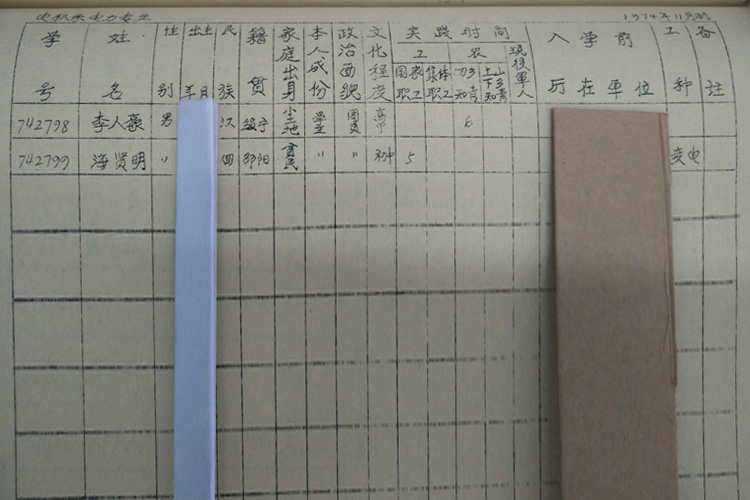 电机系电力专业 1974年11月
学号 姓名 性别 出生年月 民族 籍贯 家庭出身 本人成份 政治面貌 文化程度 实践时间 入学前所在单位 工种 备注
工 农 现役軍人
国家职工 集体职工 回乡知青 上山下乡知青
742798 李人豪 男 汉 绥宁 小土地 学生 团员 高中 6
742799 海贤明 〃 回 邵阳 贫民 〃 〃 初中 5 变电